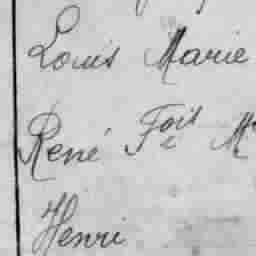 Louis Marie
René Fois Me
Henri